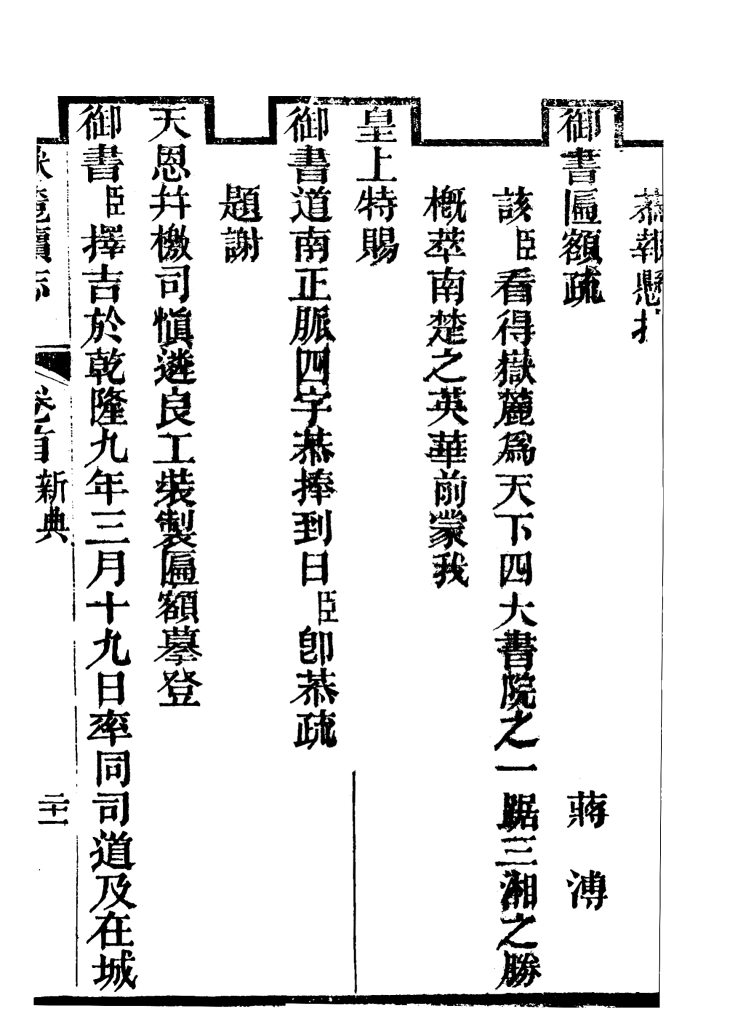 恭報懸扌
御書匾額疏　蔣溥
該臣看得嶽麓爲天下四大書院之一踞三湘之勝
概萃南楚之英華前蒙我
皇上特賜
御書道南正脈四字恭捧到日臣卽恭疏
題謝
天恩幷檄司愼遴良工裝製匾額摹登
御書臣擇吉於乾隆九年三月十九日率同司道及在城
嶽麓續志 卷首 新典 二十一